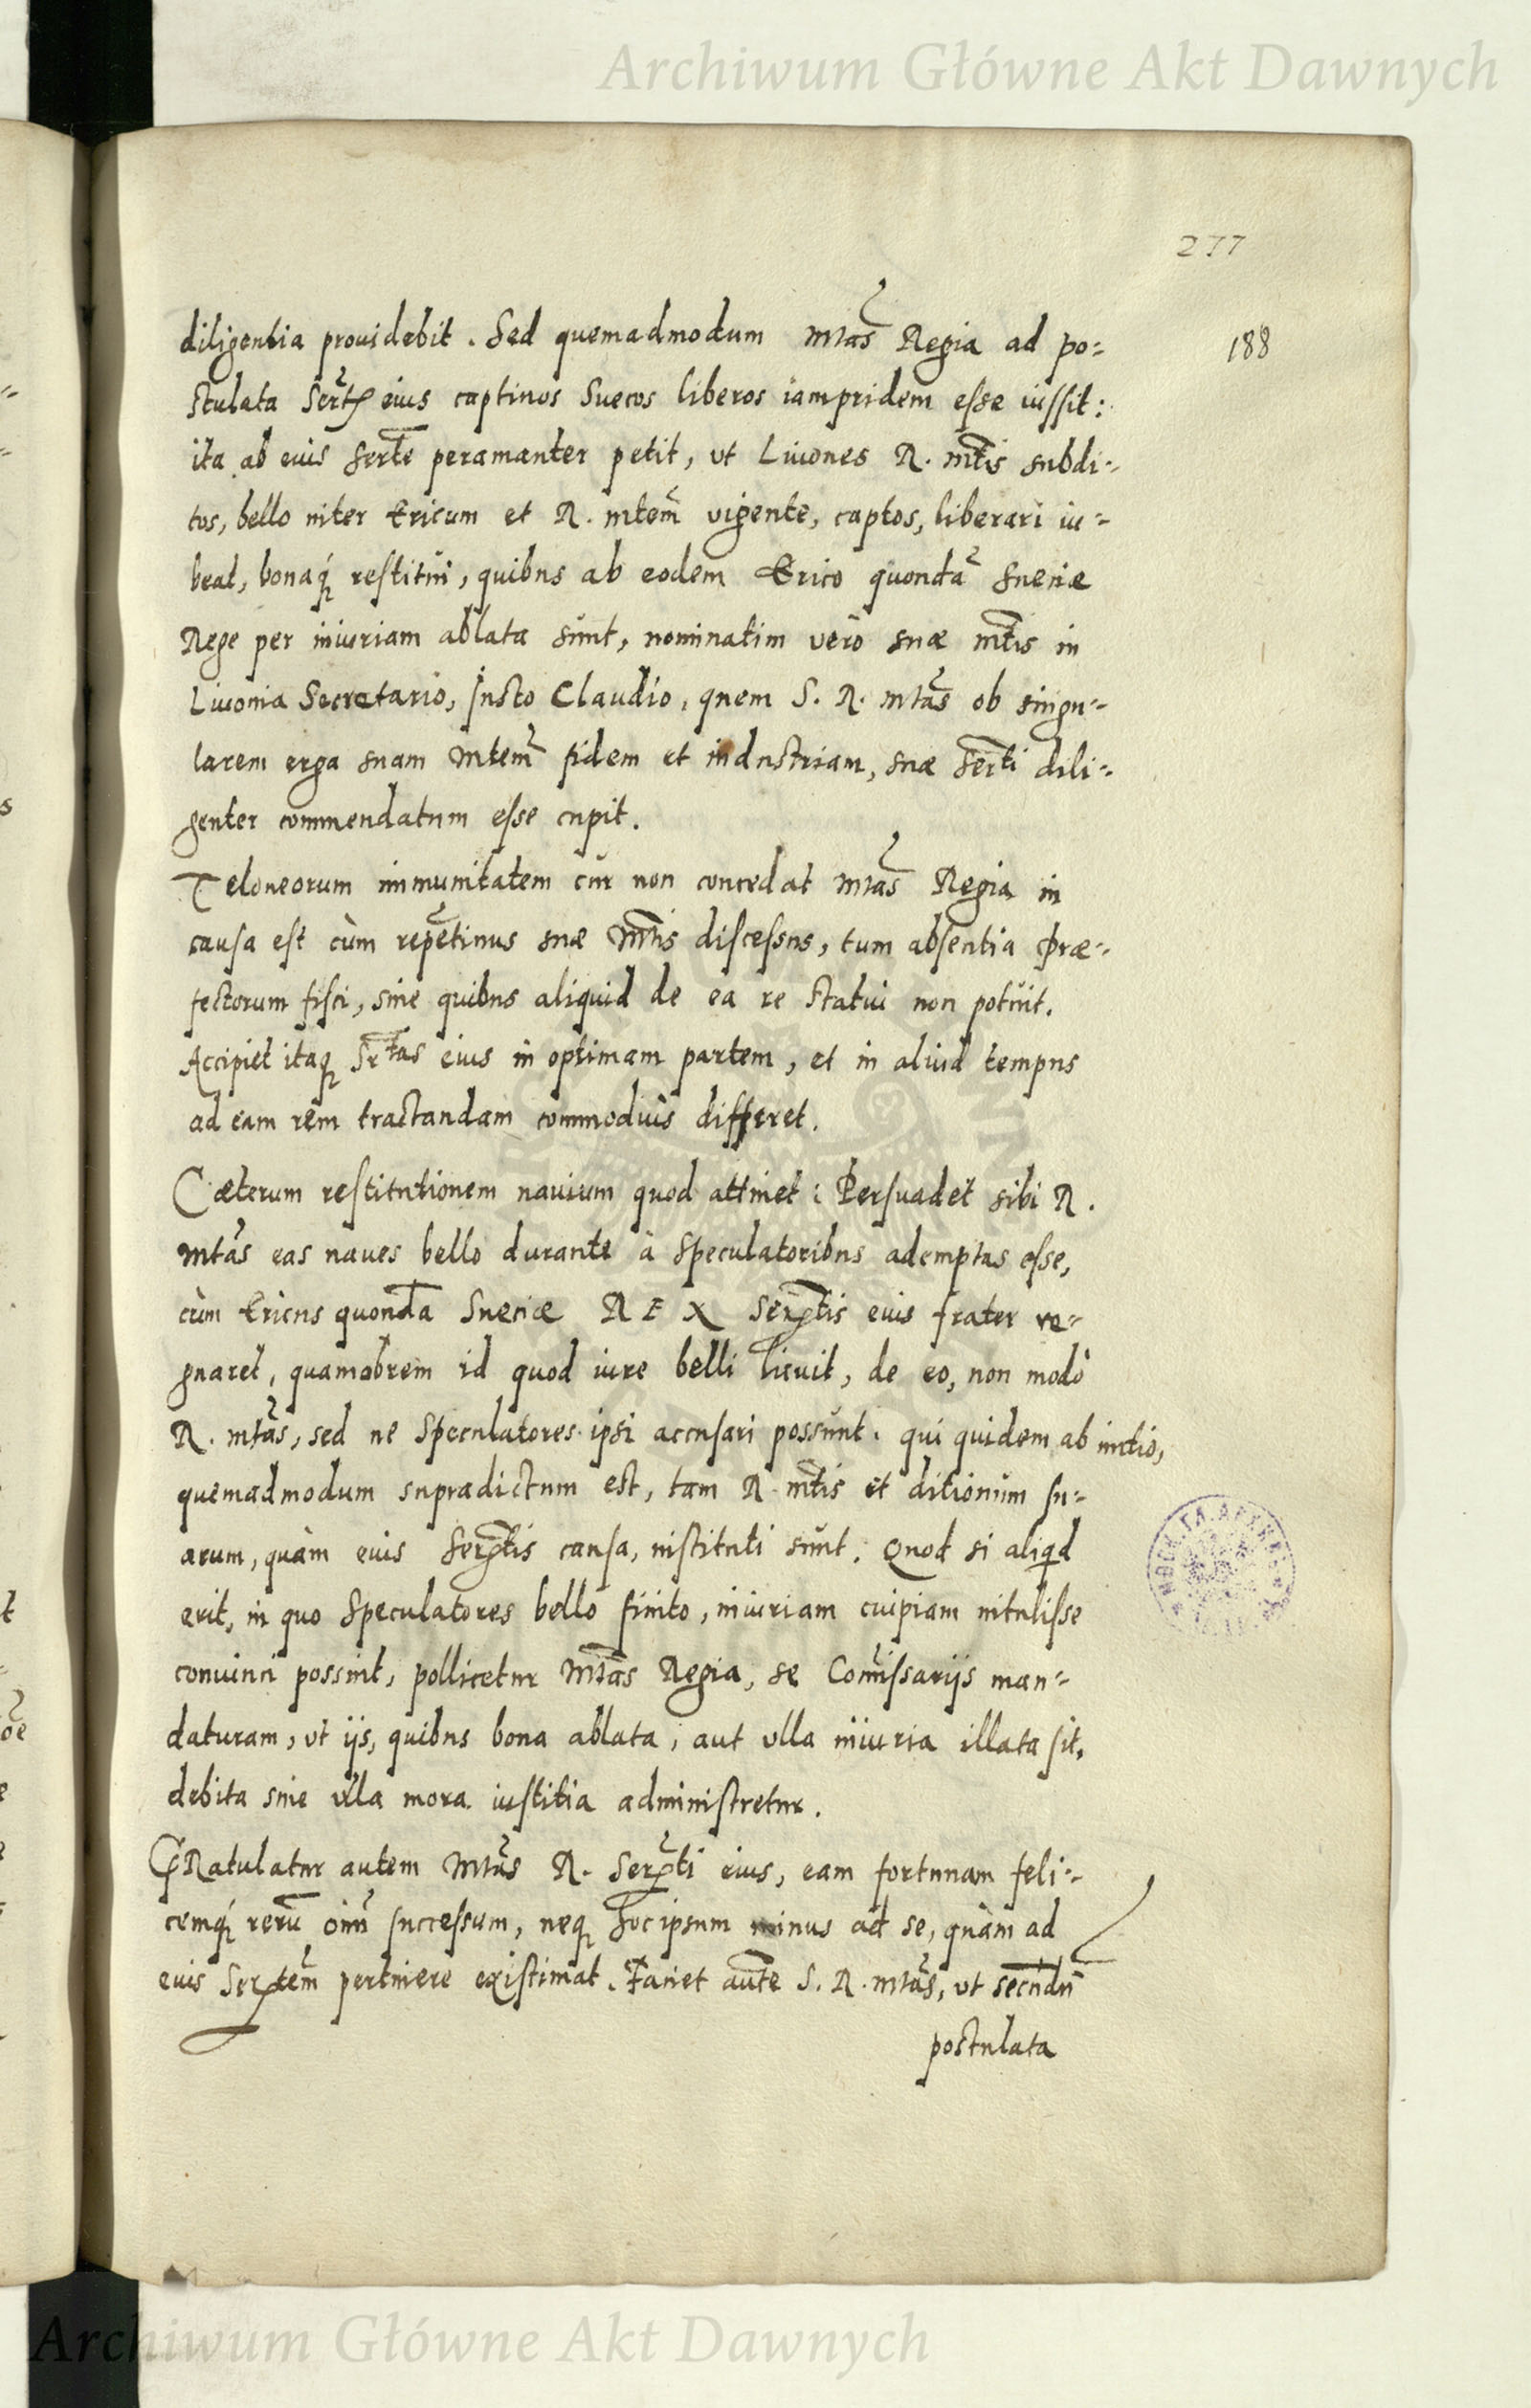 Archiwum Główne Akt Dawnych
277
188
diligentia prouidebit. Sed quemadmodum Mtas Regia ad po=
stulata Sertis eius captiuos Suecos liberos iampridem esse iussit:
ita ab eius Serte peramanter petit, vt Liuones R. Mtis subdi=
tos, bello inter Ericum et R. Mtem vigente, captos, liberari iu=
beat, bonaq́ restitui, quibus ab eodem Erico quondā Sueciæ
Rege per iniuriam ablata sunt, nominatim verò suæ Mtis in
Liuonia Secretario, Justo Claudio, quem S. R. Mtas ob singu=
larem erga suam Mtem fidem et industriam, suæ Serti dili=
genter commendatum esse cupit.
Teloneorum immunitatem cur non concedat Mtas Regia in
causa est cùm repentinus suæ Mtis discessus, tum absentia Præ=
fectorum fisci, sine quibus aliquid de ea re statui non potuit.
Accipiet itaq Srtas eius in optimam partem, et in aliud tempus
ad eam rem tractandam commodius differet.
Cæterum restitutionem nauium quod attinet: Persuadet sibi R.
Mtas eas naues bello durante à Speculatoribus ademptas esse,
cùm Ericus quondā Sueciæ REX Sertis eius frater re=
gnaret, quamobrem id quod iure belli licuit, de eo, non modò
R. Mtas, sed ne Speculatores ipsi accusari possunt. qui quidem ab initio,
quemadmodum supradictum est, tam R. Mtis et ditionum su=
arum, quàm eius Sertis causa, instituti sunt. Quod si aliqd
erit, in quo Speculatores bello finito, iniuriam cuipiam intulisse
conuinci possint, pollicetur Mtas Regia, se Comissarijs man=
daturam, vt ijs, quibus bona ablata, aut vlla iniuria illata sit,
debita sine vlla mora iustitia administretur.
GRatulatur autem Mtas R. Serti eius, eam fortunam feli=
cemq́ rerū oīm successum, neq hoc ipsum minus ad se, quàm ad
eius Sertem pertinere existimat. Faciet aute S. R. Mtas, vt secundū
postulata
Archiwum Główne Akt Dawnych